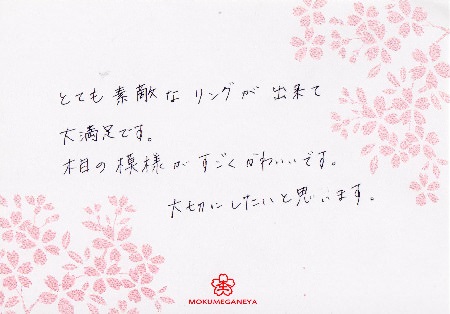 とても素敵なリングが出来て
大満足です。
木目の模様がすごくかわいいです。
大切にしたいと思います。
MOKUMEGANEYA